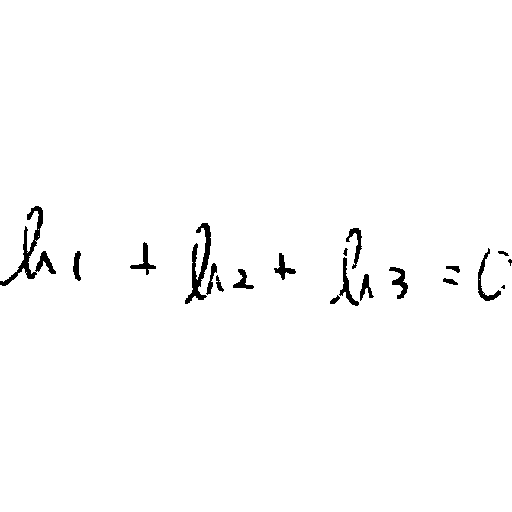 h₁ + h₂ + h₃ = 0